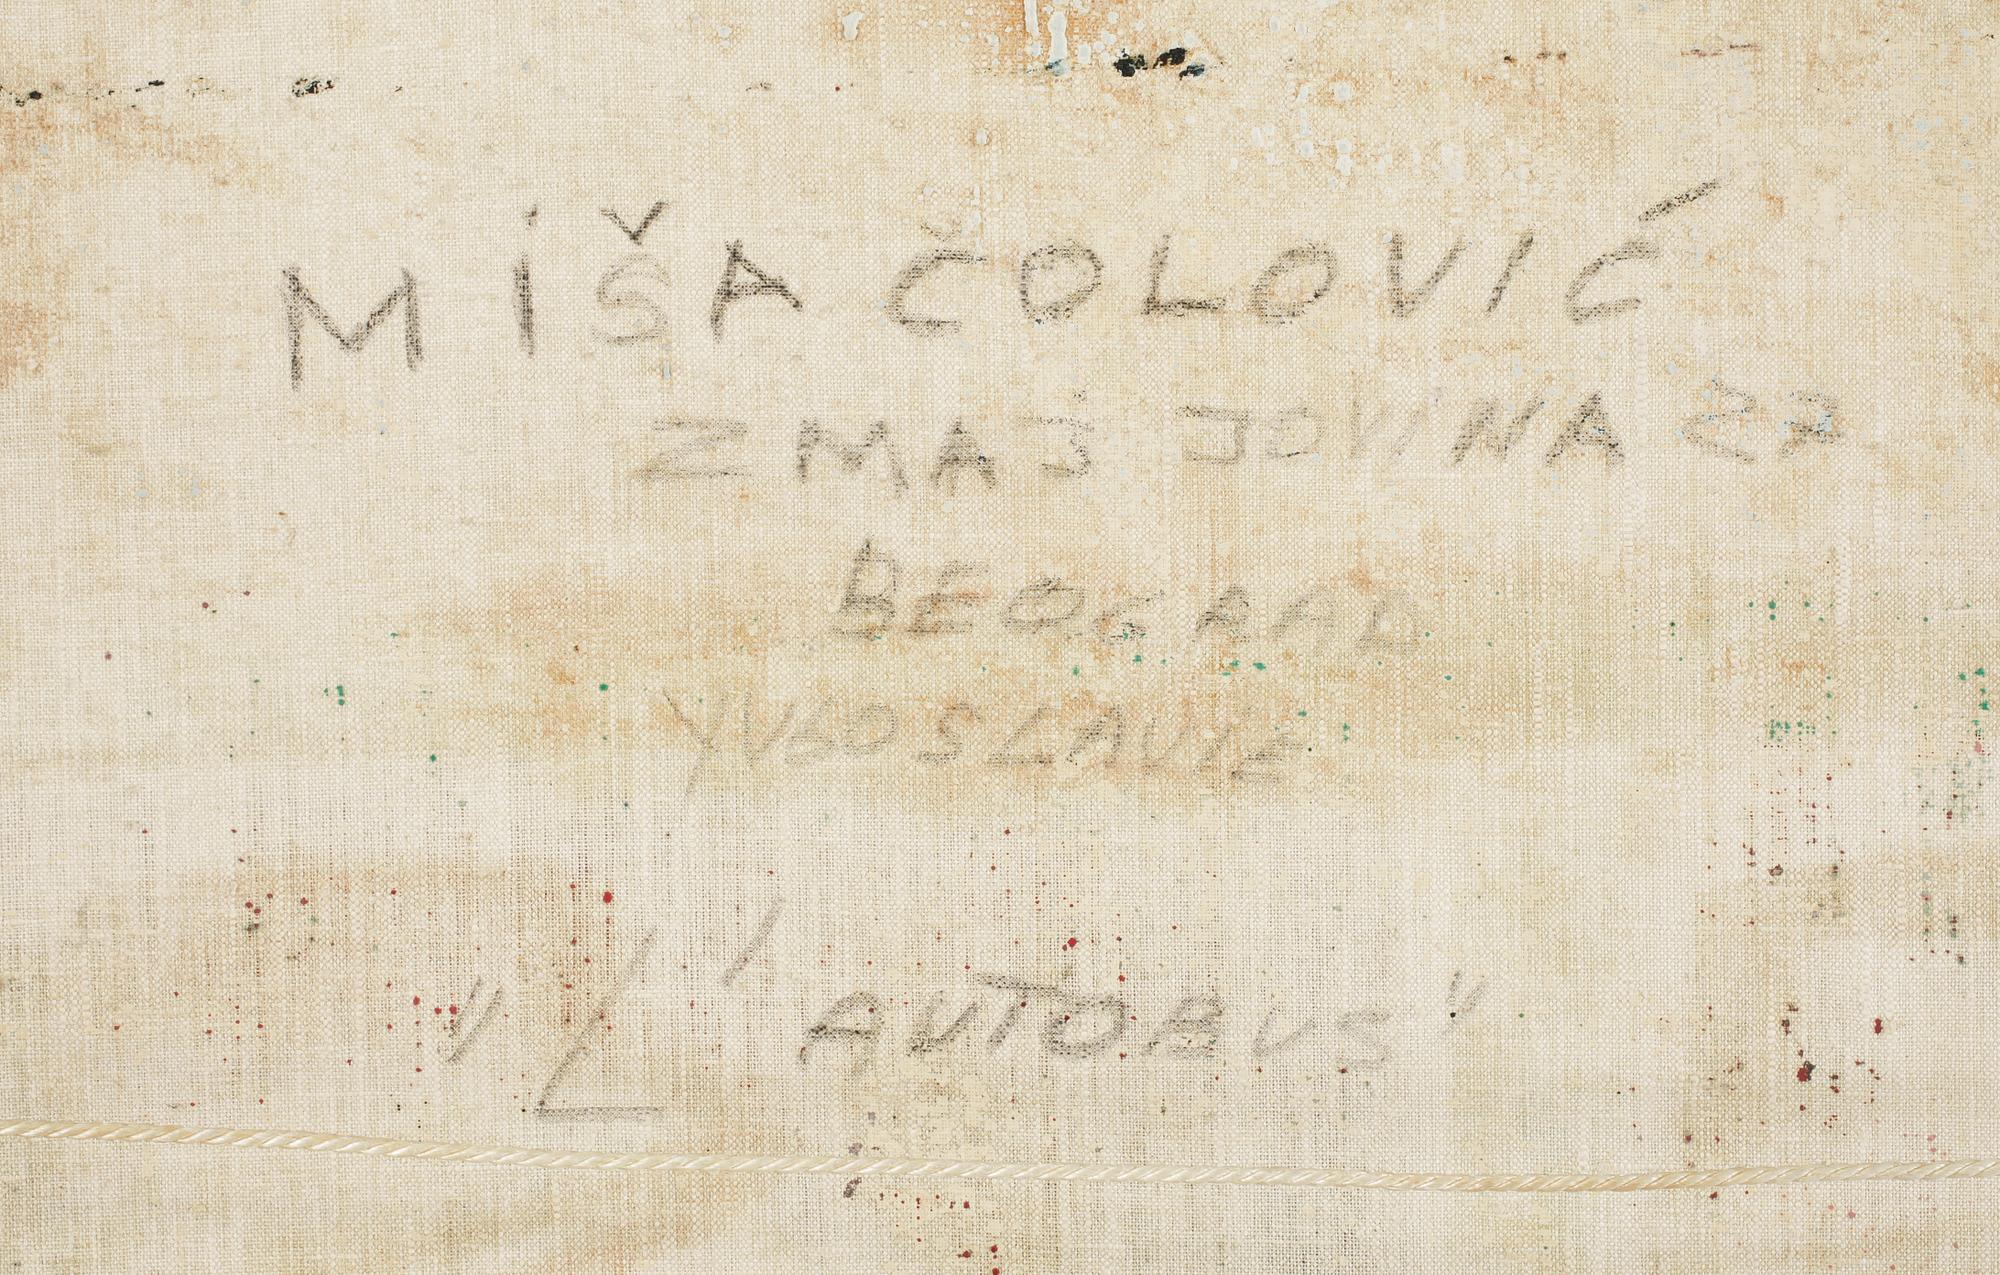 MIŠA ČOLOVIĆ
ZMAJ JOVINA
BEOGRAD
YUGOSLAVIE
"L'AUTOBUS"